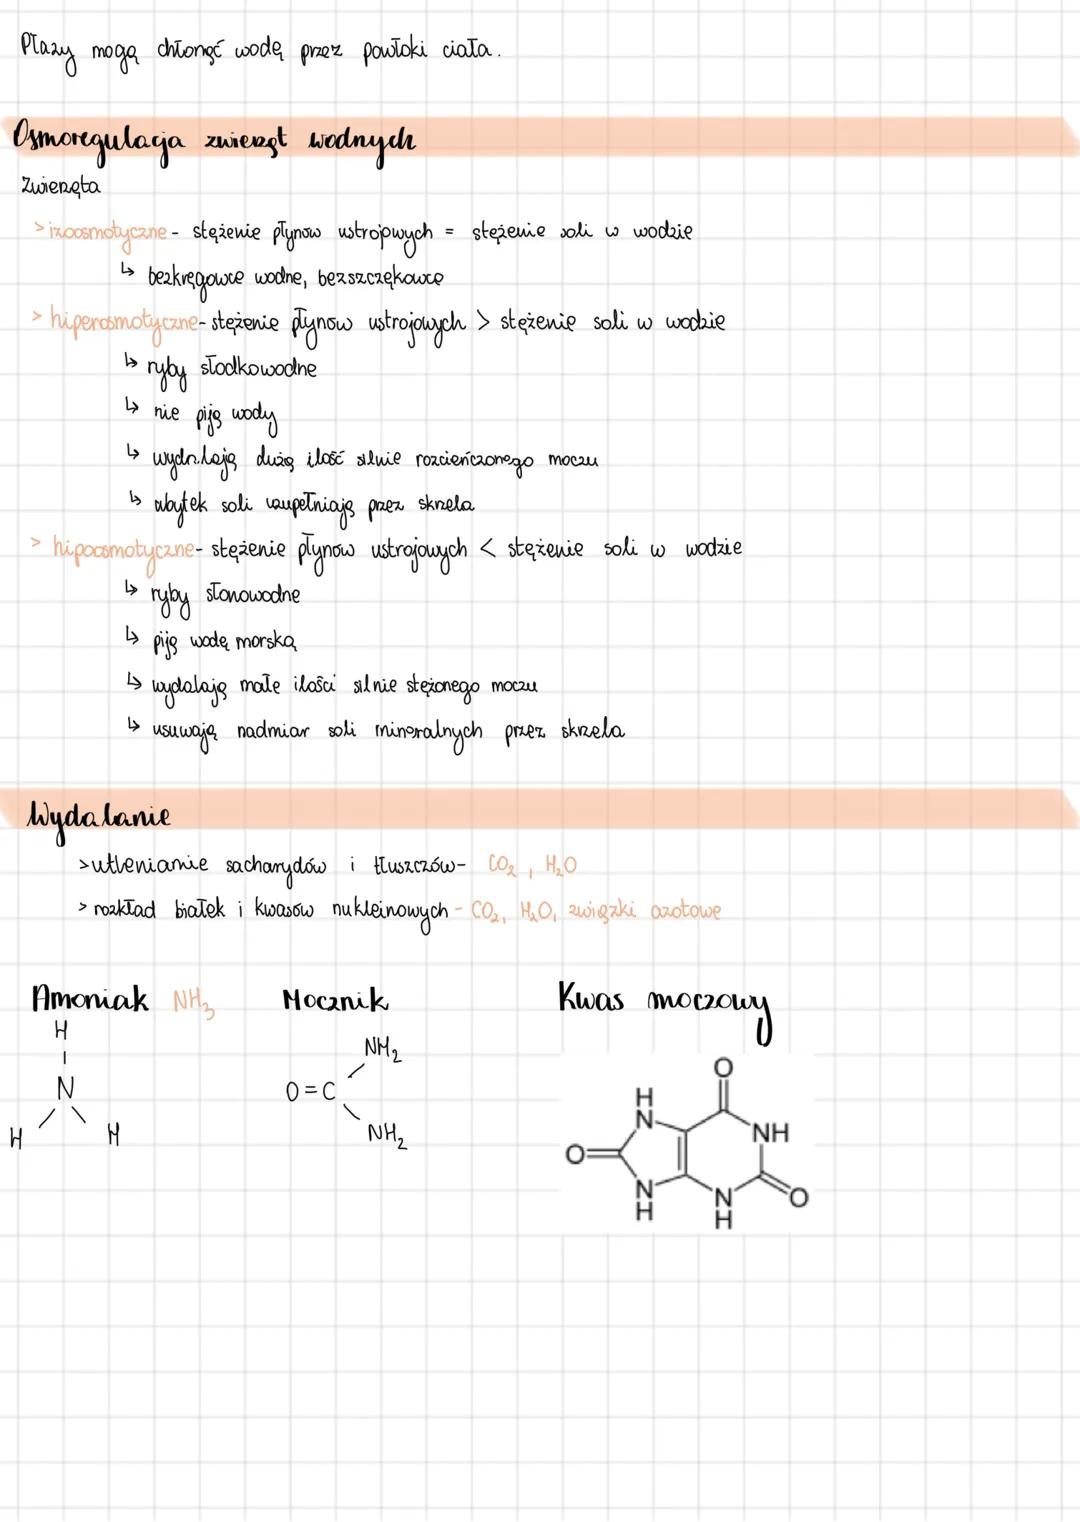 Płazy mogą chłonąć wodę przez powłoki ciała.
Osmoregulacja zwierząt wodnych
Zwierzęta
> izoosmotyczne - stężenie płynów ustrojowych = stężenie soli w wodzie
↳ bezkręgowce wodne, bezszczękowce
> hiperosmotyczne - stężenie płynów ustrojowych > stężenie soli w wodzie
↳ ryby słodkowodne
↳ nie piją wody
↳ wydalają dużą ilość silnie rozcieńczonego moczu
↳ ubytek soli uzupełniają przez skrzela
> hipoosmotyczne - stężenie płynów ustrojowych < stężenie soli w wodzie
↳ ryby słonowodne
↳ piją wodę morską
↳ wydalają małe ilości silnie stężonego moczu
↳ usuwają nadmiar soli mineralnych przez skrzela
Wydalanie
> utlenianie sacharydów i tłuszczów - CO₂, H₂O
> rozkład białek i kwasów nukleinowych - CO₂, H₂O, związki azotowe
Amoniak NH₃ Mocznik Kwas moczowy
H
N
H H
NH₂
O=C
NH₂
O
H
N
NH
O
N
H
N
H
O